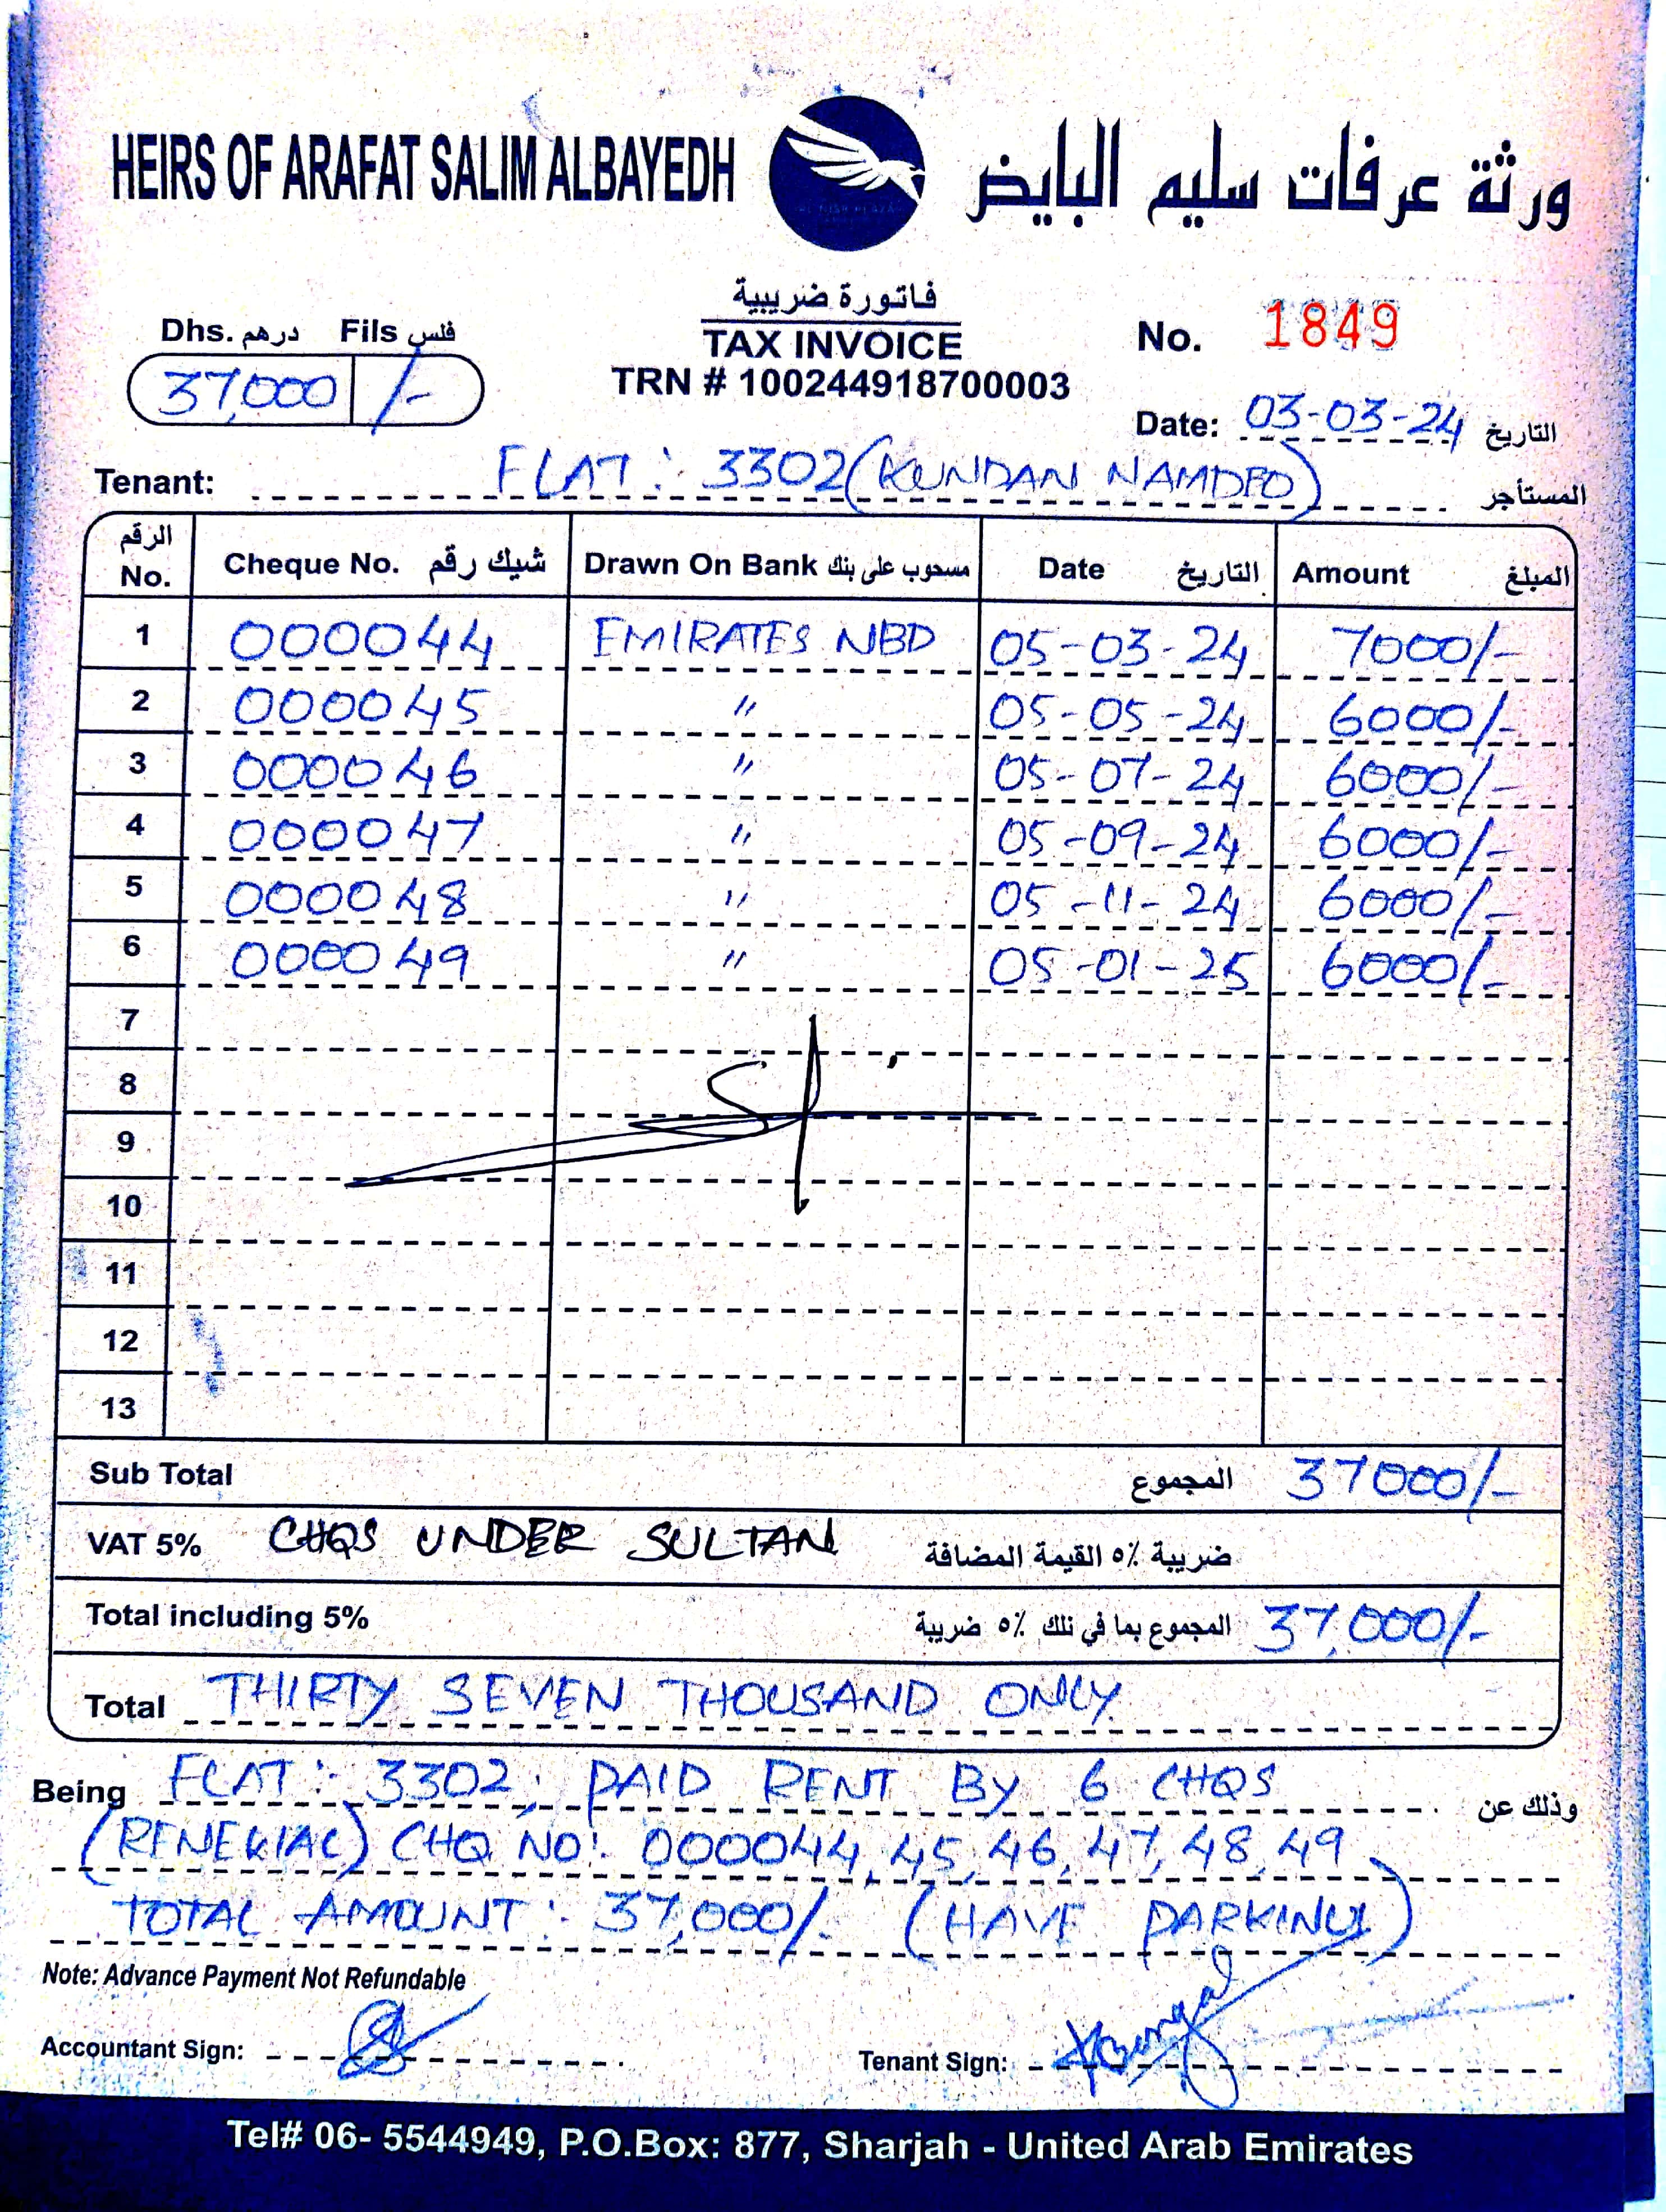 HEIRS OF ARAFAT SALIM ALBAYEDH ورثة عرفات سليم البايض
فاتورة ضريبية
TAX INVOICE
TRN # 100244918700003
Dhs. درهم Fils فلس
37,000 /-
No. 1849
Date: 03-03-24 التاريخ
Tenant: FLAT: 3302 (KUNDAN NAMDEO) المستأجر
الرقم No. Cheque No. شيك رقم Drawn On Bank مسحوب على بنك Date التاريخ Amount المبلغ
1 000044 EMIRATES NBD 05-03-24 7000/-
2 000045 " 05-05-24 6000/-
3 000046 " 05-07-24 6000/-
4 000047 " 05-09-24 6000/-
5 000048 " 05-11-24 6000/-
6 000049 " 05-01-25 6000/-
7
8
9
10
11
12
13
Sub Total المجموع 37000/-
VAT 5% CHQS UNDER SULTAN ضريبة ٥٪ القيمة المضافة
Total including 5% المجموع بما في تلك ٥٪ ضريبة 37,000/-
Total THIRTY SEVEN THOUSAND ONLY
Being FLAT: 3302, PAID RENT BY 6 CHQS وذلك عن
(RENEWAL) CHQ NO: 000044, 45, 46, 47, 48, 49
TOTAL AMOUNT: 37,000/- (HAVE PARKING)
Note: Advance Payment Not Refundable
Accountant Sign:
Tenant Sign:
Tel# 06- 5544949, P.O.Box: 877, Sharjah - United Arab Emirates